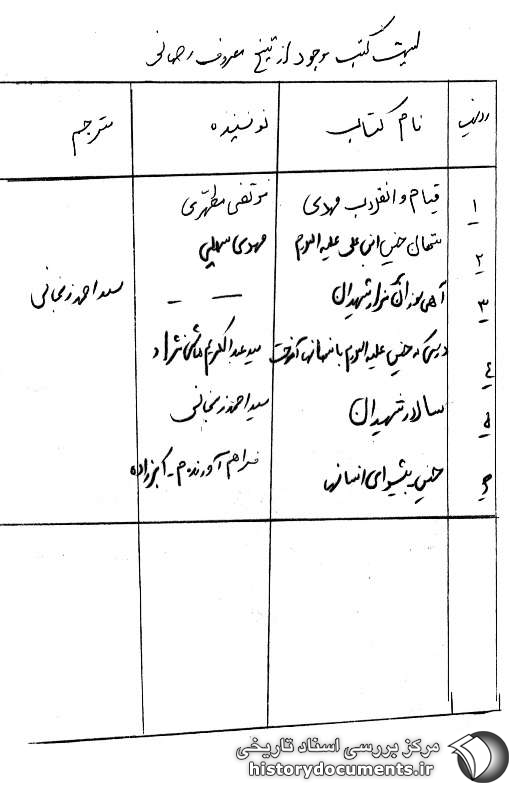 لیست کتب موجود از شیخ معروف رضائی
ردیف نام کتاب نویسنده مترجم
۱ قیام و انقلاب مهدی مرتضی مطهری
۲ حسین ابن علی علیه السلام مهدی سهیلی
۳ شهیدان — — سید احمد زنجانی
۴ درسی که حسین علیه السلام با انسانها آموخت سید عبدالکریم هاشمی نژاد
۵ سالار شهیدان سید احمد زنجانی
۶ حسین پیشوای انسانها فراهم آورنده م - اکبرزاده
مرکز بررسی اسناد تاریخی
historydocuments.ir